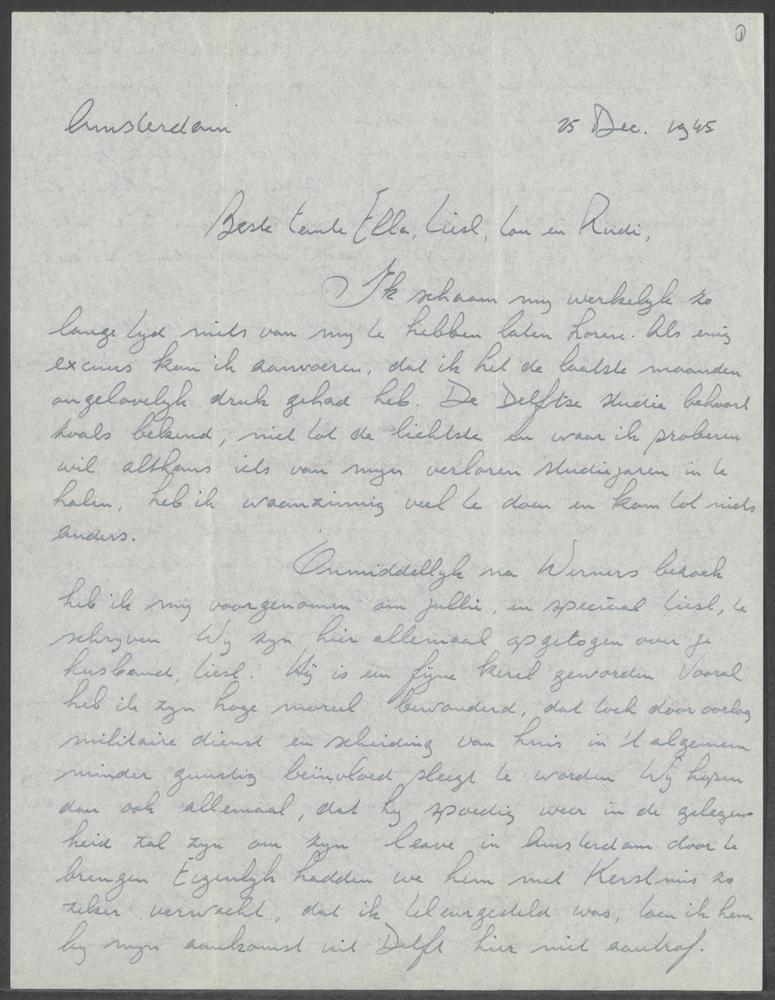 ①
Amsterdam 25 Dec. 1945
Beste tante Ella, Liesl, Lou en Rudi,
Ik schaam my werkelyk zo
lange tyd niets van my te hebben laten horen. Als enig
excuus kan ik aanvoeren, dat ik het de laatste maanden
ongelovelyk druk gehad heb. De Delftse studie behoort
zoals bekend, niet tot de lichtste en waar ik proberen
wil althans iets van myn verloren studiejaren in te
halen, heb ik waanzinnig veel te doen en kom tot niets
anders.
Onmiddellyk na Werners bezoek
heb ik my voorgenomen om jullie, en speciaal Liesl, te
schryven Wy zyn hier allemaal opgetogen over je
husband, Liesl. Hy is een fyne kerel geworden Vooral
heb ik zyn hoge moreel bewonderd, dat toch door oorlog
militaire dienst en scheiding van huis in 't algemeen
minder gunstig beïnvloed pleegt te worden Wy hopen
dan ook allemaal, dat hy spoedig weer in de gelegen-
heid zal zyn om zyn leave in Amsterdam door te
brengen Eigenlyk hadden we hem met Kerstmis zo
zeker verwacht, dat ik teleurgesteld was, toen ik hem
by myn aankomst uit Delft hier niet aantrof.